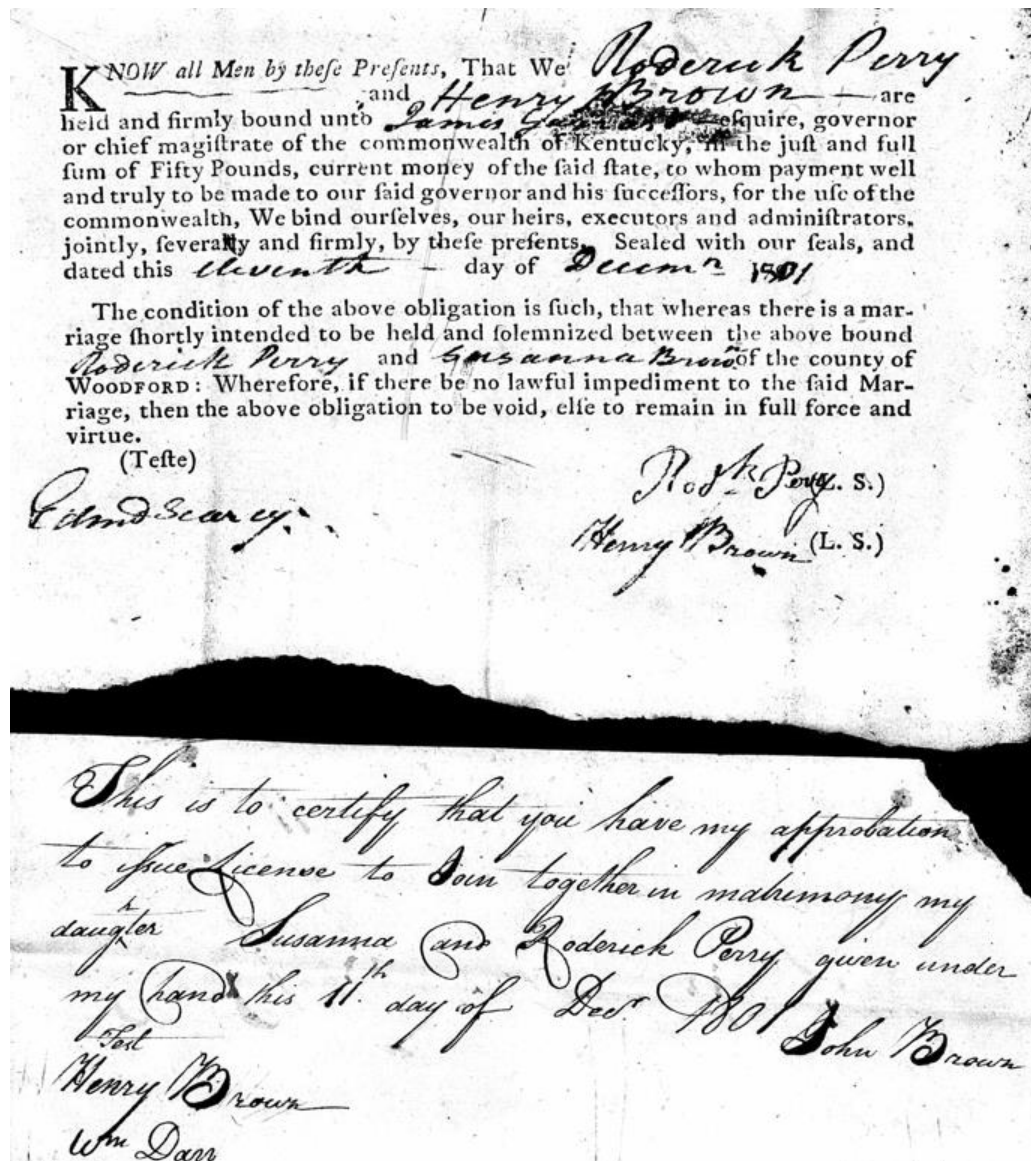 KNOW all Men by theſe Preſents, That We Roderick Perry
and Henry Brown are
held and firmly bound unto James eſquire, governor
or chief magiſtrate of the commonwealth of Kentucky, in the juſt and full
ſum of Fifty Pounds, current money of the ſaid ſtate, to whom payment well
and truly to be made to our ſaid governor and his ſucceſſors, for the uſe of the
commonwealth, We bind ourſelves, our heirs, executors and adminiſtrators,
jointly, ſeverally and firmly, by theſe preſents. Sealed with our ſeals, and
dated this eleventh – day of Decemr 1801
The condition of the above obligation is ſuch, that whereas there is a mar-
riage ſhortly intended to be held and ſolemnized between the above bound
Roderick Perry and Susanna Brown of the county of
WOODFORD: Wherefore, if there be no lawful impediment to the ſaid Mar-
riage, then the above obligation to be void, elſe to remain in full force and
virtue.
(Teſte)
Rodk Perry (L. S.)
Edmd Searcy
Henry Brown (L. S.)
This is to certify that you have my approbation
to iſsue License to Join together in matrimony my
daughter Susanna and Roderick Perry given under
my hand this 11th day of Decr 1801 John Brown
Test
Henry Brown
Wm Darr